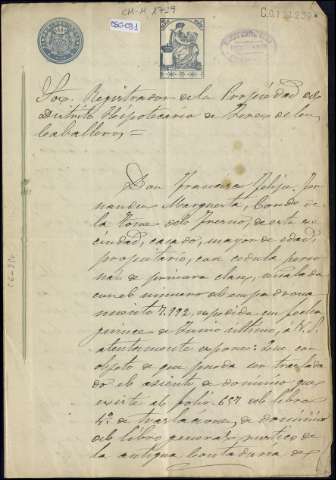 CM-H 8729
C.0.122.239
Sor. Registrador de la Propiedad del
Distrito Hipotecario de Jerez de los
Caballeros =
Don Francisco Felipe Fer-
nandez Marquesta, Conde de
la Torre del Fresno, de esta ve-
cindad, casado, mayor de edad,
propietario, con cedula perso-
nal de primera clase, señalada
con el numero de empadrona-
miento 7.192, expedida en fecha
quince de Junio ultimo, a V. S.
atentamente expone: Que con
objeto de que pueda ser traslada-
do el asiento de dominio que
existe al folio 657 del libro
4º de traslaciones de dominio
del libro general, rustico de
la antigua Contaduria de